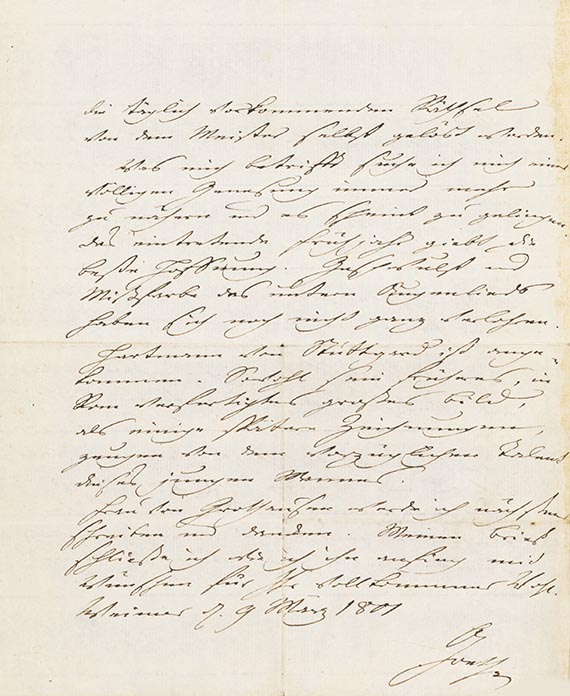 die täglich vorkommenden Räthsel
von dem Meister selbst gelöst werden.
Was mich betrifft suche ich mich einer
völligen Genesung immer mehr
zu nähern und es scheint zu gelingen.
das eintretende Frühjahr giebt die
beste Hoffnung. Geschwulst und
Mißfarbe des untern Augenlieds
haben sich noch nicht ganz verlohren.
Hartmann von Stuttgard ist ange-
kommen. Sowohl sein früheres, in
Rom verfertigtes großes Bild,
als einige spätere Zeichnungen,
zeugen von dem vorzüglichen Talent
dieses jungen Mannes.
Frau von Grothausen werde ich nächstens
schreiben und danken. Meinen Brief
schließe ich wie ich ihn anfing mit
Wünschen für Ihr vollkommnes Wohl.
Weimar d. 9 März 1801
Goethe